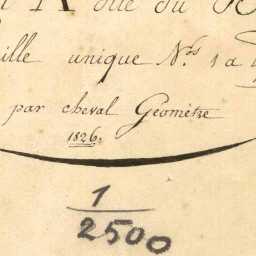 R due du
ille unique N.os 1 a
par cheval Geomètre
1826.
1
2500